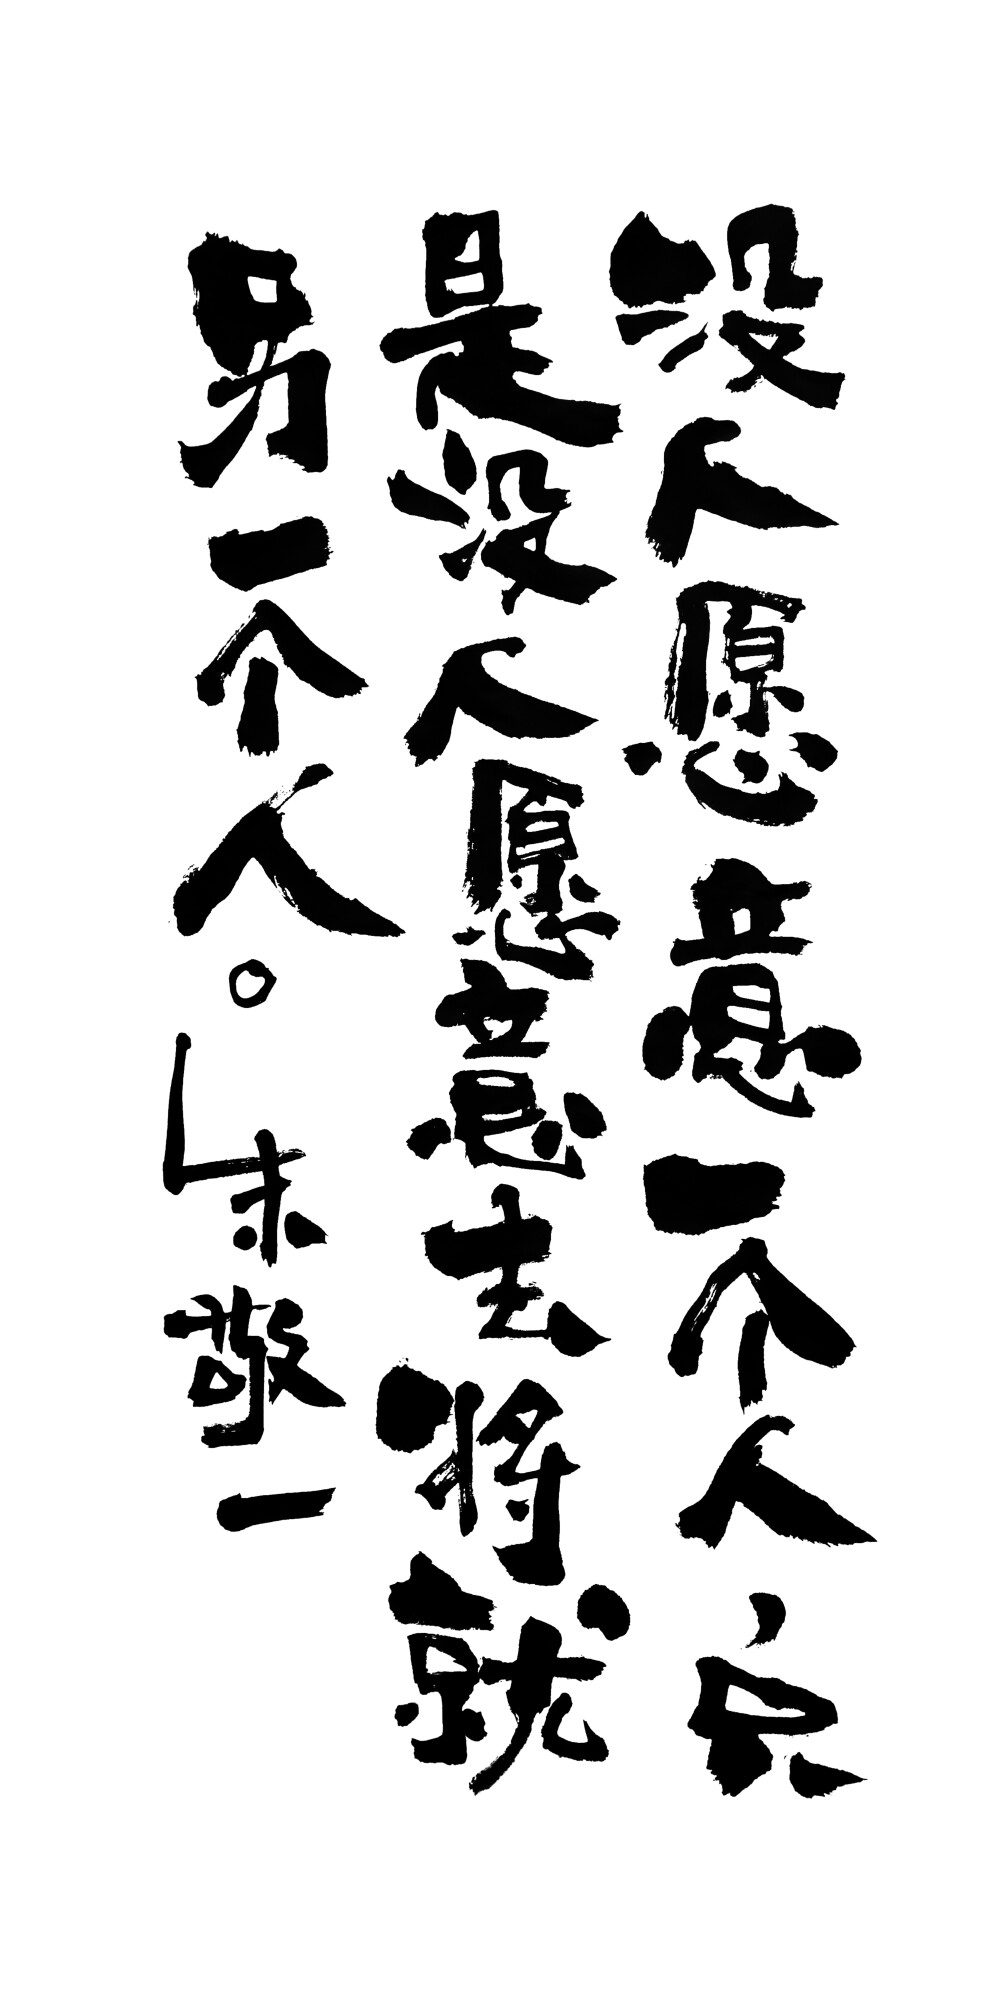 没人愿意一个人，只
是没人愿意去将就
另一个人。
朱敬一